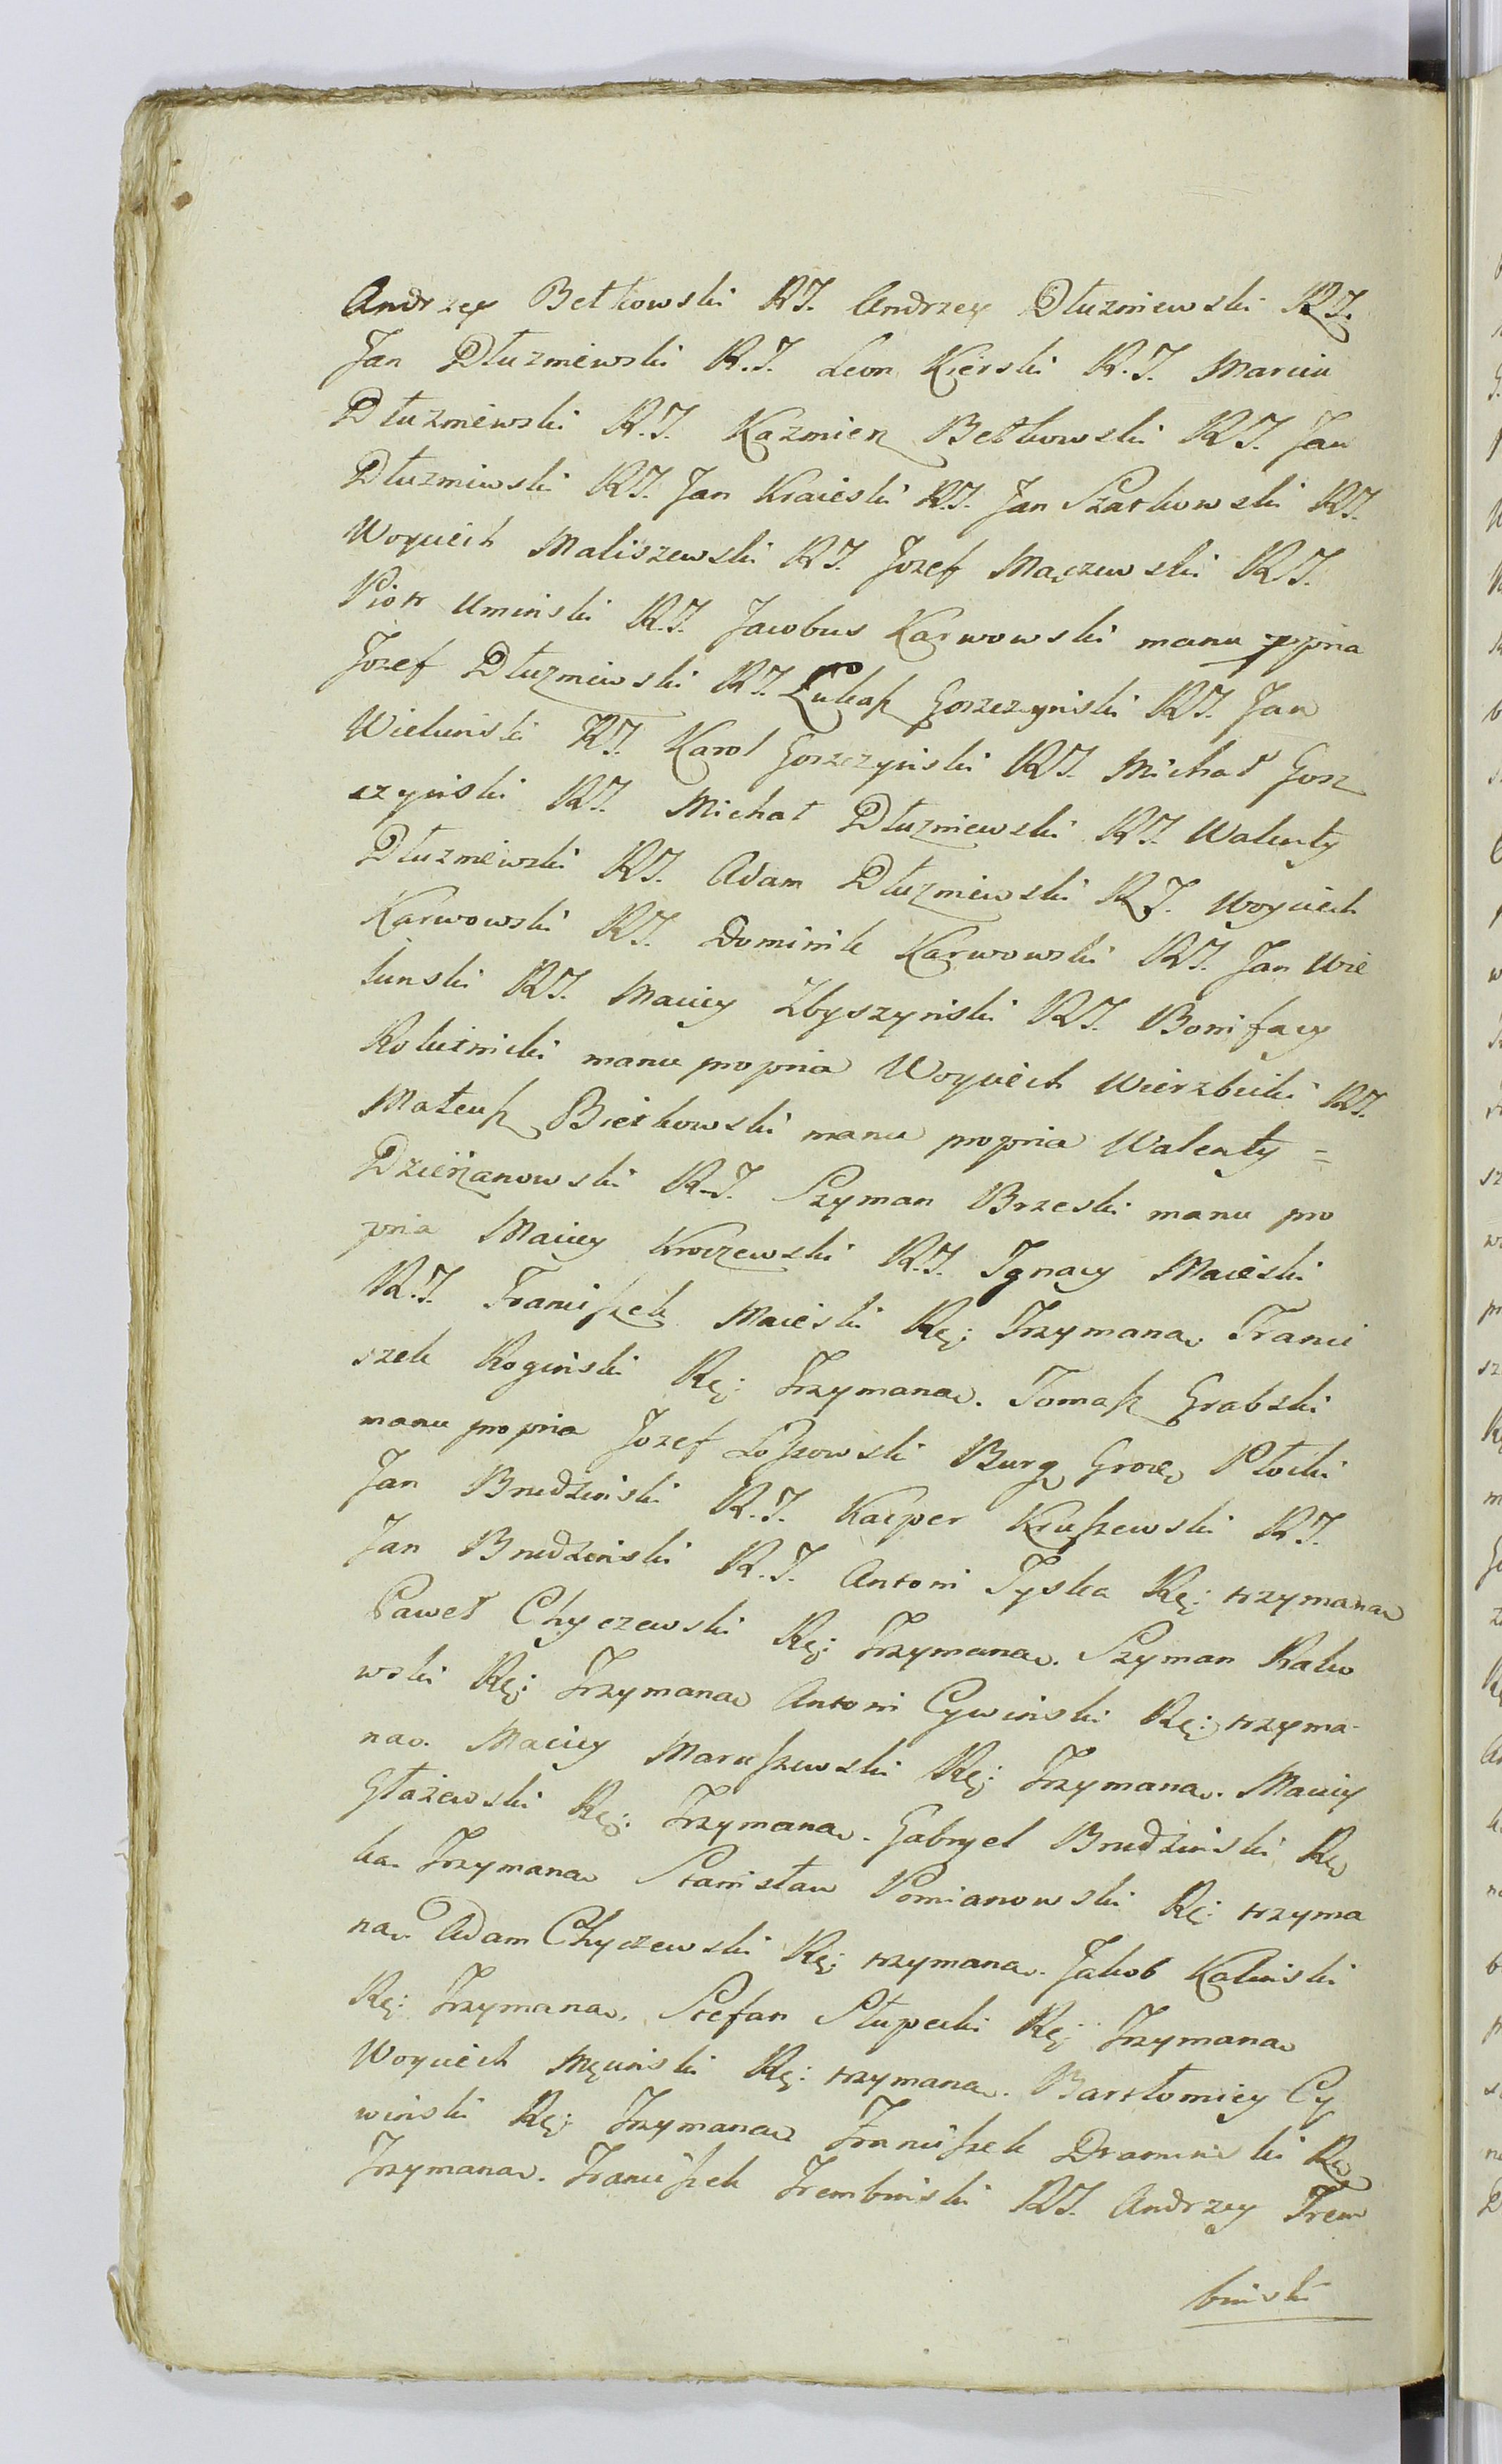 Andrzey Betkowski RT. Andrzey Dłuzniewski RT.
Jan Dłuzniewski R.T. Leon Kierski R.T. Marcin
Dłuzniewski R.T. Kazmierz Betkowski RT. Jan
Dłuzniewski RT. Jan Kraieski RT. Jan Szatkowski RT.
Woyciech Maliszewski RT. Jozef Mączewski RT.
Piotr Uminski RT. Jacobus Karwowski manu ppria
Jozef Dłuzniewski RT. Łukaſz Gorzczyński RT. Jan
Wieluński RT. Karol Gorzczyński RT. Michał Gorz
czyński RT. Michał Dłuzniewski RT. Walenty
Dłuzniewski RT. Adam Dłuzniewski RT. Woyciech
Karwowski RT. Dominik Karwowski RT. Jan Wie
lunski RT. Maciey Zbyszyński RT. Bonifacy
Kolużnicki manu propria Woyciech Wierzbicki RT.
Mateuſz Bieżkowski manu propria Walenty =
Dzierżanowski R.T. Szyman Brzeski manu pro
pria Maciey Kroczewski R.T. Ignacy Maieski
R.T. Franciſzek Maieski Rę: Trzymana. Franci
szek Rogiński Rę: Trzymana. Tomaſz Grabski
manu propria Jozef Loſzowski Burg. Grodz. Płocki
Jan Brudziński R.T. Kacper Kruſzewski RT.
Jan Brudziński R.T. Antoni Tyska Rę: trzymana
Paweł Chyczewski Rę: Trzymana. Szyman Rako
wski Rę: Trzymana Antoni Cywiński Rę: trzyma-
na. Maciey Maruſzewski Rę: Trzymana. Maciey
Głażewski Rę: Trzymana. Gabryel Brudziński Rę
ka Trzymana Stanisław Pomianowski Rę: trzyma
na. Adam Chyczewski Rę: trzymana. Jakob Kaliński
Rę: Trzymana. Stefan Słupecki Rę: Trzymana
Woyciech Męciński Rę: trzymana. Bartłomiey Cy
wiński Rę: Trzymana Franciſzek Dramiński Rę
Trzymana. Franciſzek Trembiński RT. Andrzey Trem
biński